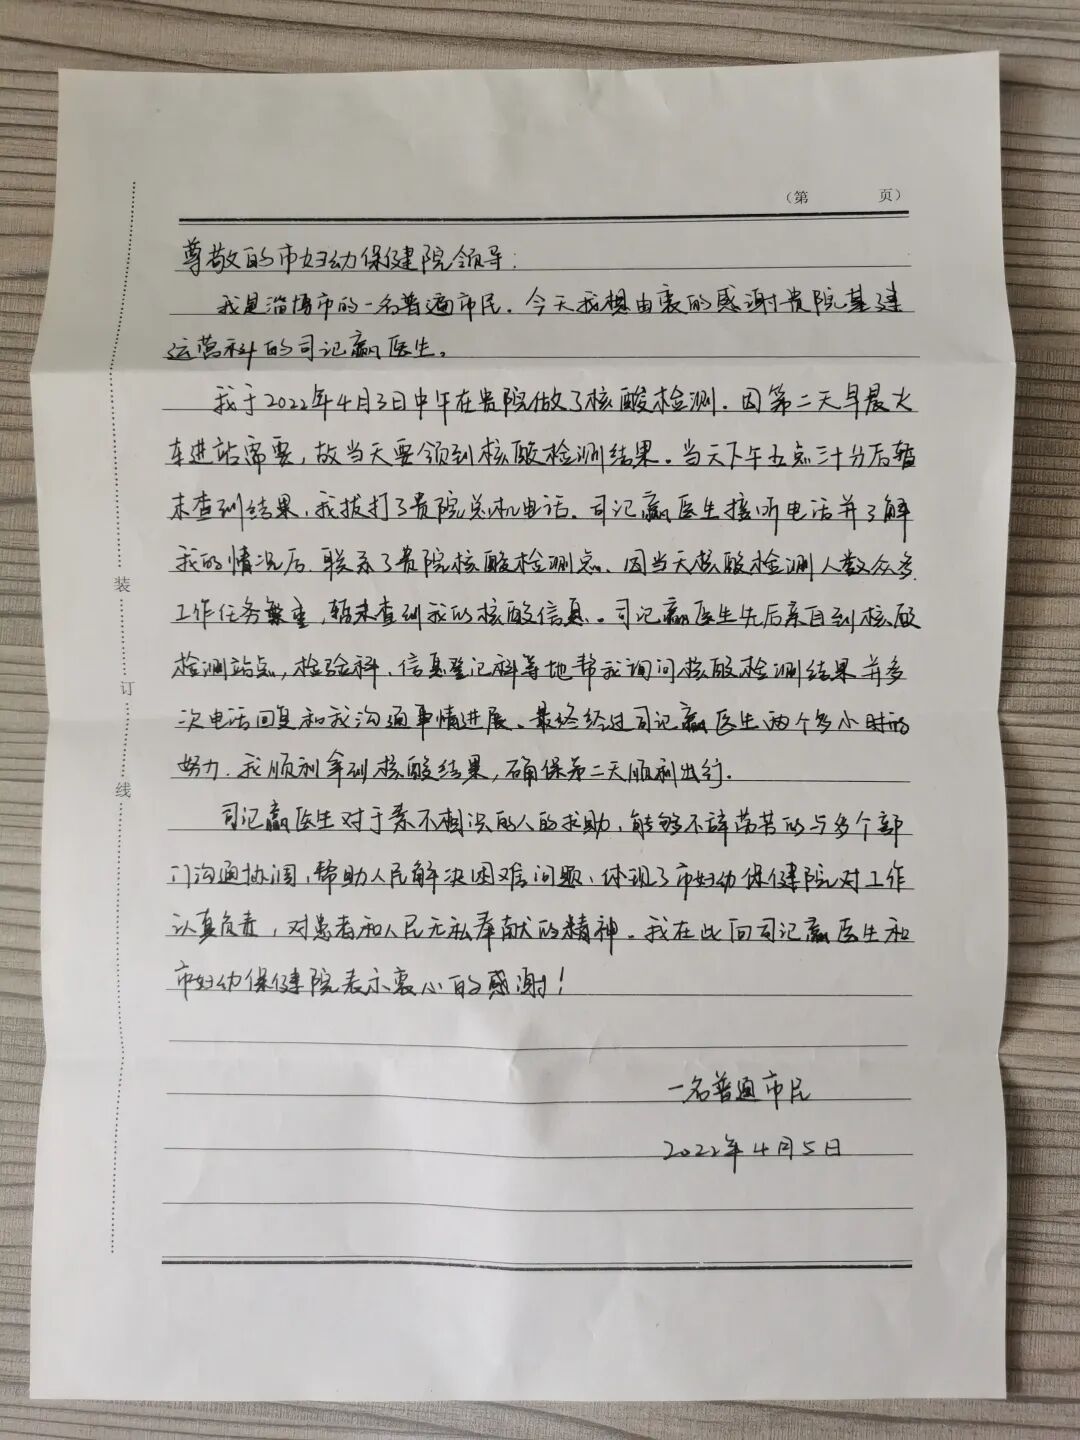 （第 页）
尊敬的市妇幼保健院领导：
我是淄博市的一名普通市民。今天我想由衷的感谢贵院基建
运营科的司记赢医生。
我于2022年4月3日中午在贵院做了核酸检测。因第二天早晨火
车进站需要，故当天要领到核酸检测结果。当天下午五点三十分后暂
未查到结果，我拔打了贵院总机电话。司记赢医生接听电话并了解
我的情况后，联系了贵院核酸检测点。因当天核酸检测人数众多，
工作任务繁重，暂未查到我的核酸信息。司记赢医生先后亲自到核酸
检测站点，检验科、信息登记科等地帮我询问核酸检测结果并多
次电话回复和我沟通事情进展。最终经过司记赢医生两个多小时的
努力，我顺利拿到核酸结果，确保第二天顺利出行。
司记赢医生对于素不相识的人的求助，能够不辞劳苦的与多个部
门沟通协调，帮助人民解决困难问题，体现了市妇幼保健院对工作
认真负责，对患者和人民无私奉献的精神。我在此向司记赢医生和
市妇幼保健院表示衷心的感谢！
一名普通市民
2022年4月5日
装
订
线